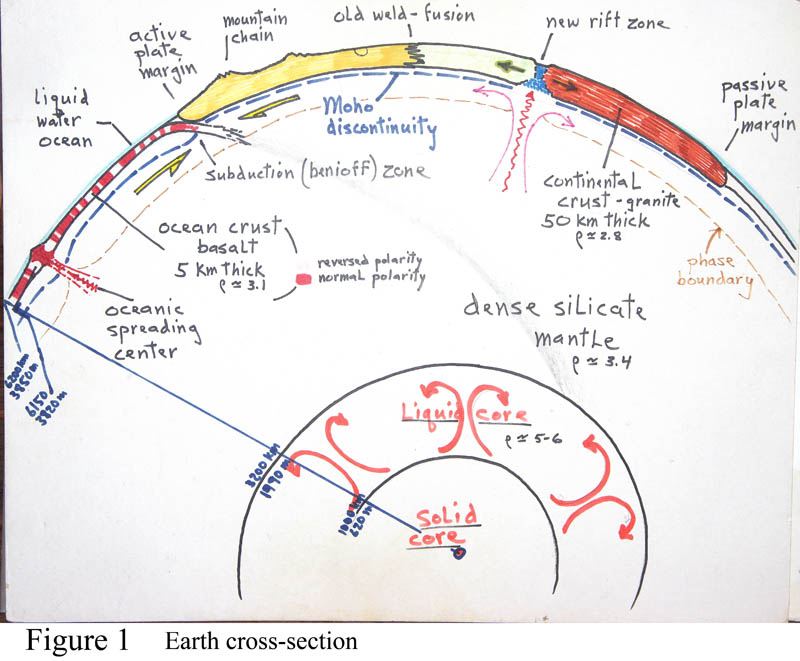 old weld-fusion
mountain
chain
new rift zone
active
plate
margin
passive
plate
margin
liquid
water
ocean
Moho
discontinuity
subduction (benioff) zone
continental
crust-granite
50 km thick
ρ ≃ 2.8
ocean crust
basalt
5 km thick
ρ ≃ 3.1
reversed polarity
normal polarity
phase
boundary
oceanic
spreading
center
dense silicate
mantle
ρ ≃ 3.4
6200 km
3850 m
6150
3820 m
Liquid core
ρ ≃ 5-6
3200 km
1990 m
1000 km
620 m
Solid
core
Figure 1 Earth cross-section